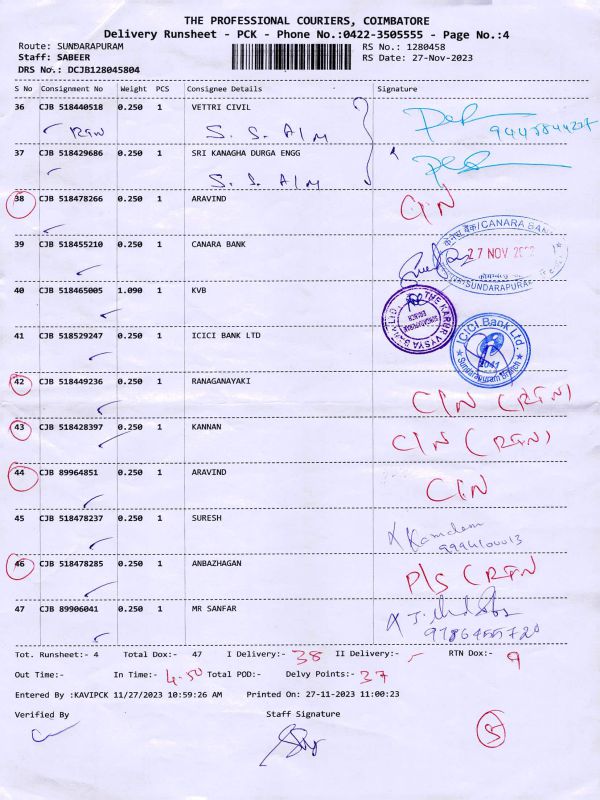 THE PROFESSIONAL COURIERS, COIMBATORE
Delivery Runsheet - PCK - Phone No.:0422-3505555 - Page No.:4
Route: SUNDARAPURAM RS No.: 1280458
Staff: SABEER RS Date: 27-Nov-2023
DRS No.: DCJB128045804
S No Consignment No Weight PCS Consignee Details Signature
36 CJB 518440518 0.250 1 VETTRI CIVIL
RTN S. S. Alm
37 CJB 518429686 0.250 1 SRI KANAGHA DURGA ENGG
S. S. Alm
38 CJB 518478266 0.250 1 ARAVIND C/N
39 CJB 518455210 0.250 1 CANARA BANK
CANARA BANK
27 NOV
SUNDARAPURAM
40 CJB 518465005 1.090 1 KVB
THE KARUR VYSYA BANK LTD
41 CJB 518529247 0.250 1 ICICI BANK LTD
ICICI Bank Ltd.
Sundarapuram Branch
42 CJB 518449236 0.250 1 RANAGANAYAKI C/N (RTN)
43 CJB 518428397 0.250 1 KANNAN C/N (RTN)
44 CJB 89964851 0.250 1 ARAVIND C/N
45 CJB 518478237 0.250 1 SURESH
46 CJB 518478285 0.250 1 ANBAZHAGAN P/S (RTN
47 CJB 89906041 0.250 1 MR SANFAR
Tot. Runsheet:- 4 Total Dox:- 47 I Delivery:- 38 II Delivery:- - RTN Dox:- 9
Out Time:- In Time:- 4.50 Total POD:- Delvy Points:- 37
Entered By :KAVIPCK 11/27/2023 10:59:26 AM Printed On: 27-11-2023 11:00:23
Verified By Staff Signature